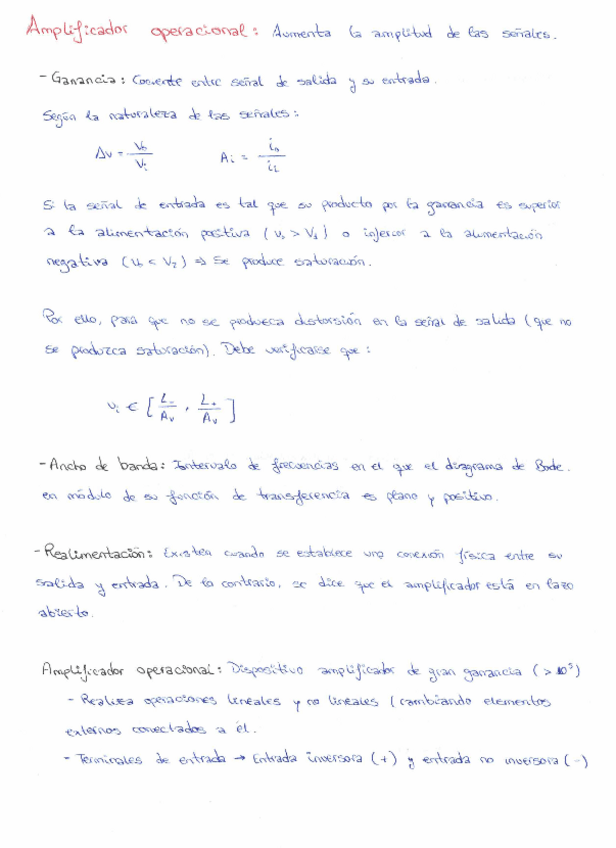 Amplificador operacional: Aumenta la amplitud de las señales.
- Ganancia: Cociente entre señal de salida y su entrada.
Según la naturaleza de las señales:
Av = Vo / Vi    Ai = io / ii
Si la señal de entrada es tal que su producto por la ganancia es superior
a la alimentación positiva (vo > V1) o inferior a la alimentación
negativa (vo < V2) ⇒ Se produce saturación.
Por ello, para que no se produzca distorsión en la señal de salida (que no
se produzca saturación). Debe verificarse que:
vi ∈ [ L- / Av , L+ / Av ]
- Ancho de banda: Intervalo de frecuencias en el que el diagrama de Bode.
en módulo de su función de transferencia es plano y positivo.
- Realimentación: Existen cuando se establece una conexión física entre su
salida y entrada. De lo contrario, se dice que el amplificador está en lazo
abierto.
Amplificador operacional: Dispositivo amplificador de gran ganancia (> 10⁵)
- Realiza operaciones lineales y no lineales (cambiando elementos
externos conectados a él.
- Terminales de entrada → Entrada inversora (+) y entrada no inversora (-)